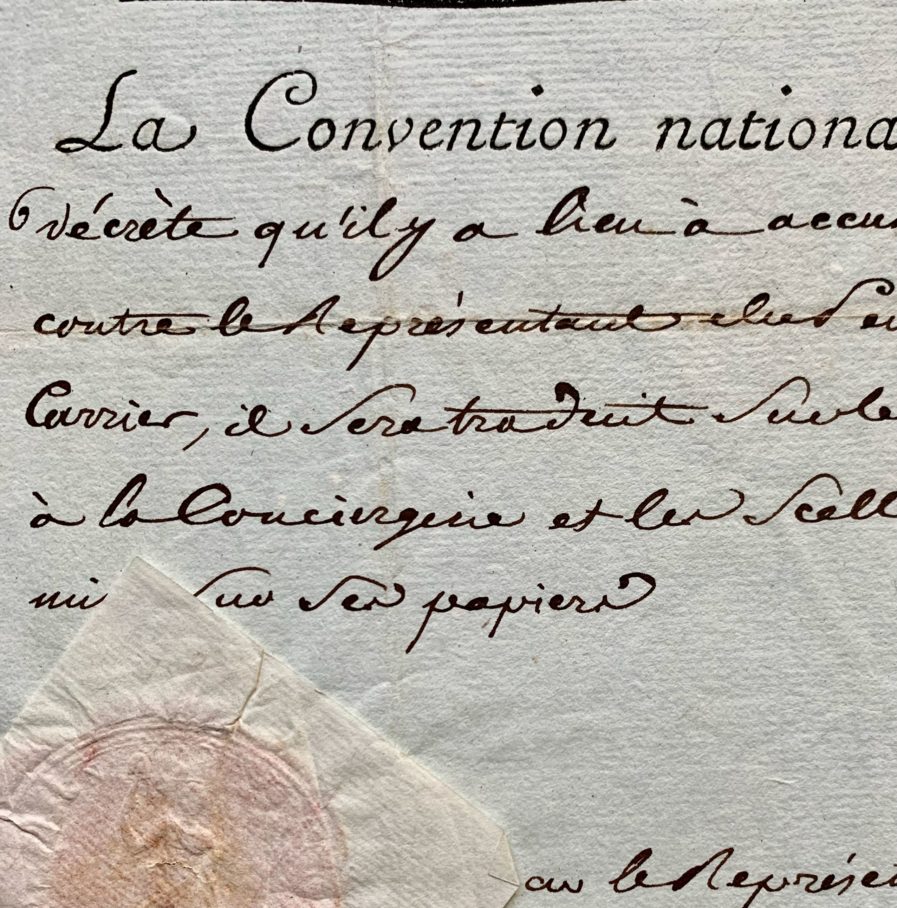 La Convention nationa
Décrète qu'il y a lieu à accu
contre le Représentant du Peu
Carrier, il sera traduit sur le
à la Conciergerie et les Scell
mi sur ses papiers
ar le Représe